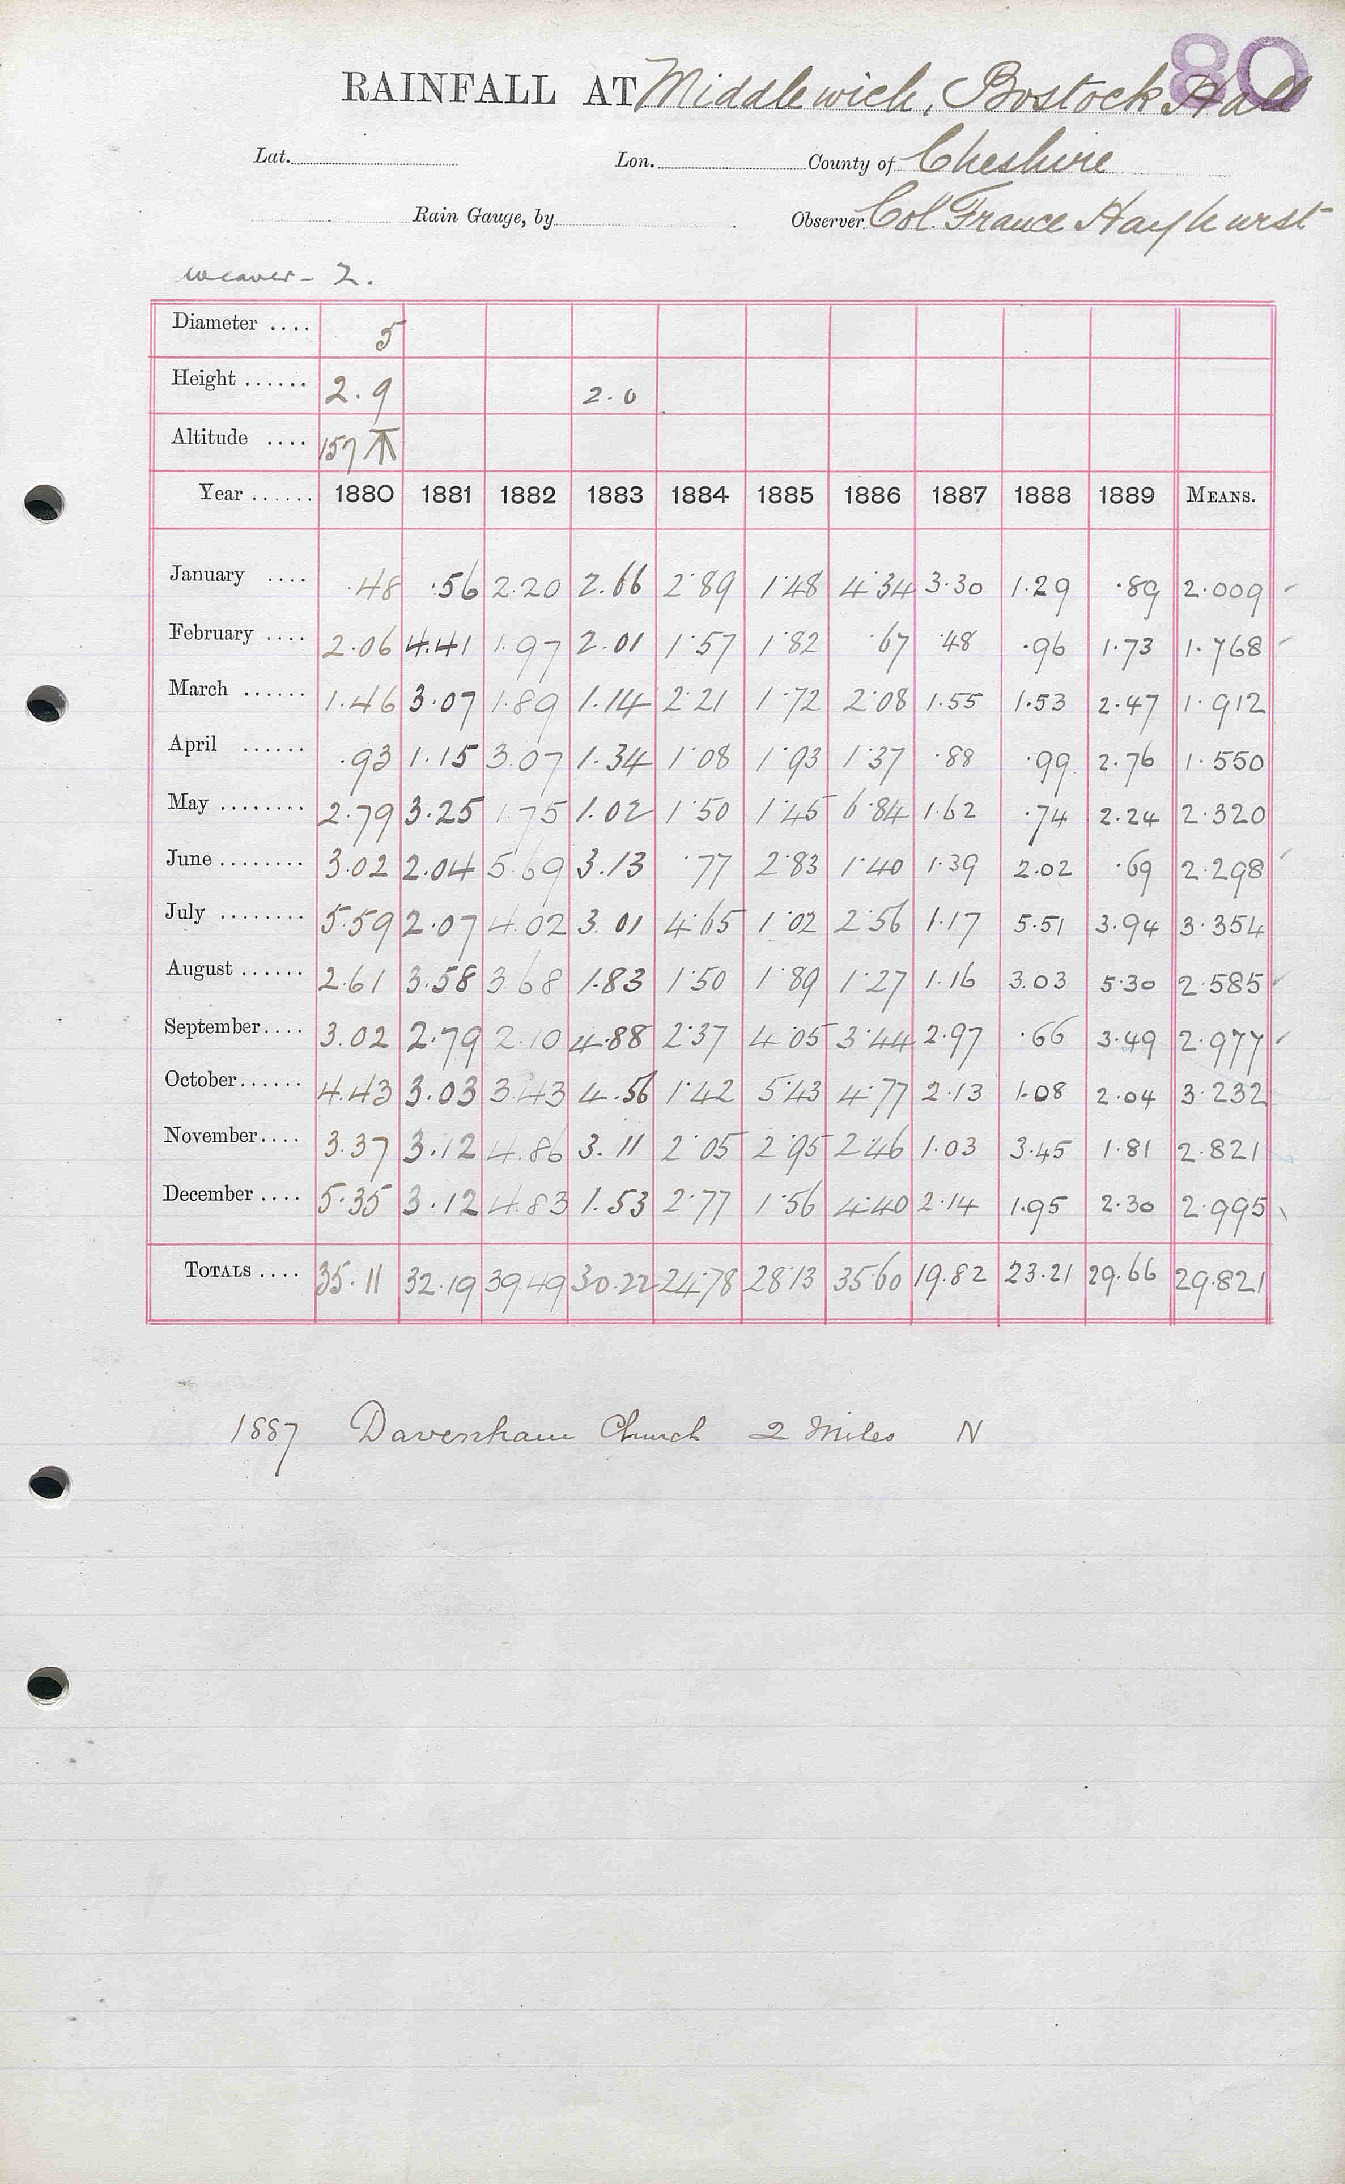 80
RAINFALL AT Middlewich, Bostock Hall
Lat. Lon. County of Cheshire
Rain Gauge, by Observer Col. France Hayhurst
Weaver - 2.
Diameter .... 5
Height ...... 2.9 2.0
Altitude .... 157
Year ...... 1880 1881 1882 1883 1884 1885 1886 1887 1888 1889 MEANS.
January .... .48 .56 2.20 2.66 2.89 1.48 4.34 3.30 1.29 .89 2.009
February .... 2.06 4.41 1.97 2.01 1.57 1.82 .67 .48 .96 1.73 1.768
March ...... 1.46 3.07 1.89 1.14 2.21 1.72 2.08 1.55 1.53 2.47 1.912
April ...... .93 1.15 3.07 1.34 1.08 1.93 1.37 .88 .99 2.76 1.550
May ........ 2.79 3.25 1.75 1.02 1.50 1.45 6.84 1.62 .74 2.24 2.320
June ........ 3.02 2.04 5.69 3.13 .77 2.83 1.40 1.39 2.02 .69 2.298
July ........ 5.59 2.07 4.02 3.01 4.65 1.02 2.56 1.17 5.51 3.94 3.354
August ...... 2.61 3.58 3.68 1.83 1.50 1.89 1.27 1.16 3.03 5.30 2.585
September.... 3.02 2.79 2.10 4.88 2.37 4.05 3.44 2.97 .66 3.49 2.977
October...... 4.43 3.03 3.43 4.56 1.42 5.43 4.77 2.13 1.08 2.04 3.232
November.... 3.37 3.12 4.86 3.11 2.05 2.95 2.46 1.03 3.45 1.81 2.821
December .... 5.35 3.12 4.83 1.53 2.77 1.56 4.40 2.14 1.95 2.30 2.995
TOTALS .... 35.11 32.19 39.49 30.22 24.78 28.13 35.60 19.82 23.21 29.66 29.821
1887 Davenham Church 2 Miles N